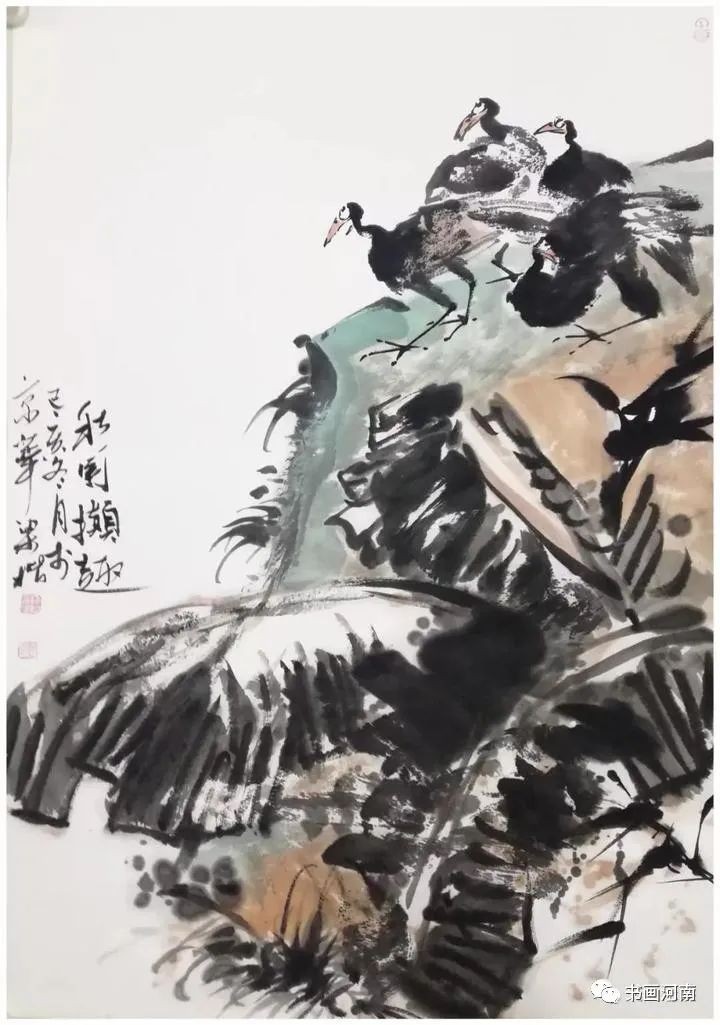 秋圃擷趣
己亥冬月於
京華
书画河南